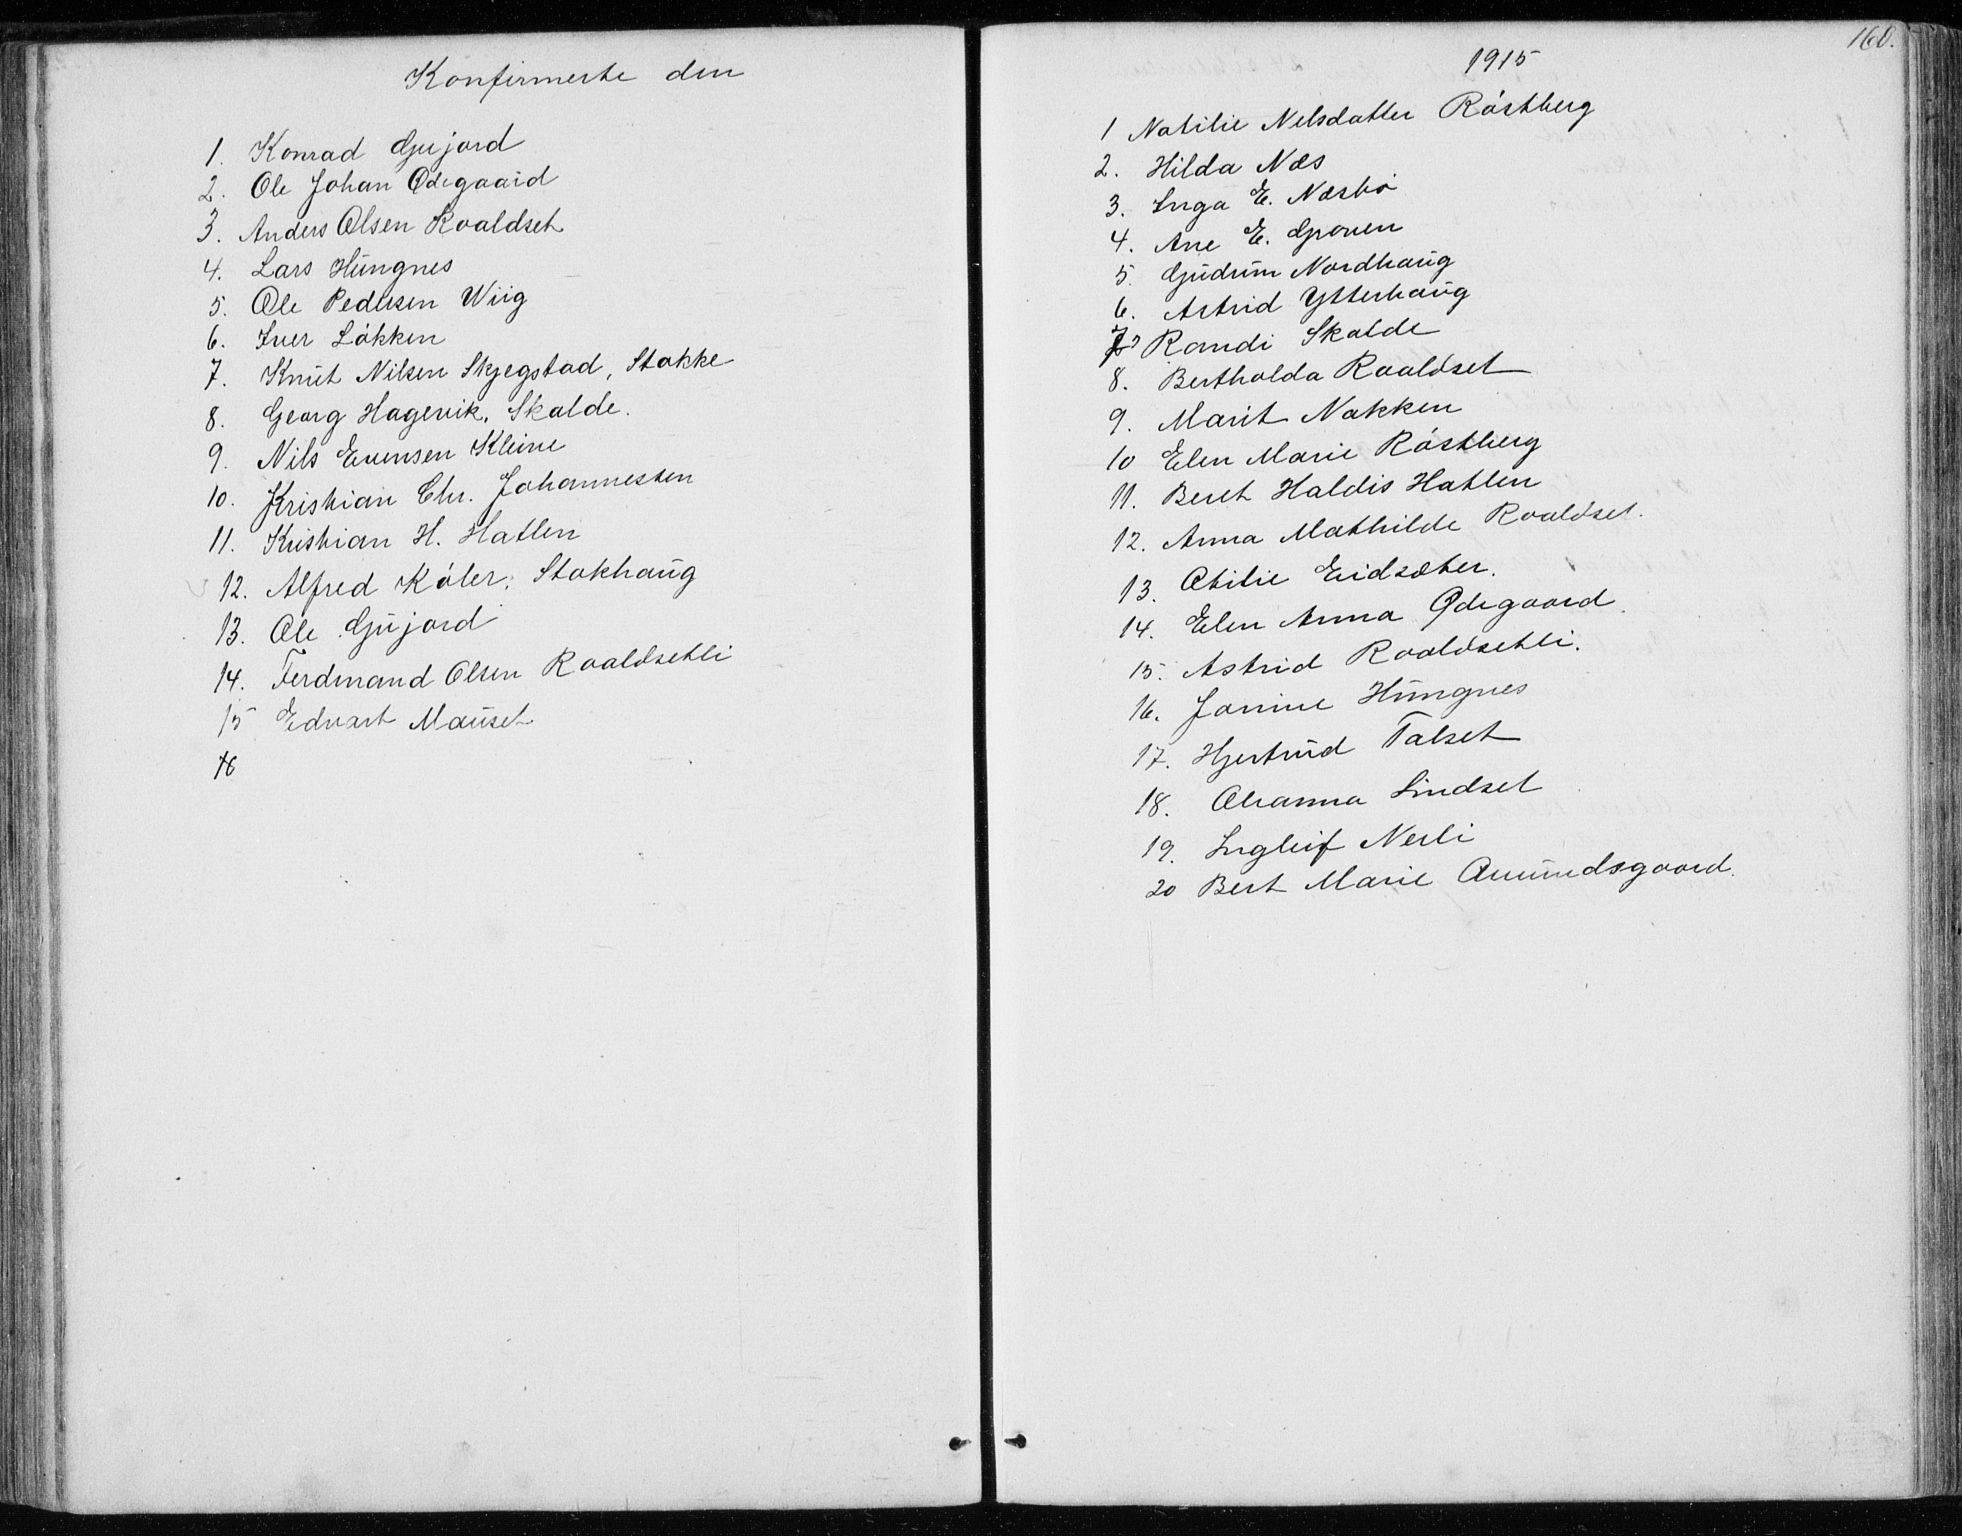 Konfirmerte den
1. Konrad Gujord
2. Ole Johan Ødegaard
3. Anders Olsen Roaldset
4. Lars Hungnes
5. Ole Pedersen Wiig
6. Iver Løkken
7. Knut Nilsen Skjegstad, Stokke
8. Georg Hagervik, Skalde.
9. Nils Evensen Kleive
10. Kristian Chr. Johannessen
11. Kristian H. Hatlen
12. Alfred Køler, Stokhaug
13. Ole Gujord
14. Ferdinand Olsen Roaldsetli
15 Edvart Mauset
16
160.
1915
1 Natilie Nelsdatter Røstberg
2. Hilda Næs
3. Inga E. Næsbø
4. Ane E. Groven
5 Gudrun Nordhaug
6. Astrid Ytterhaug
7 Randi Skalde
8. Bertholda Roaldset
9. Marit Nakken
10 Elen Marie Røstberg
11. Beret Haldis Hatlen
12. Anna Mathilde Roaldset.
13. Otilie Eidsæter.
14. Elen Anna Ødegaard.
15. Astrid Roaldsetli.
16. Janine Hungnes
17. Hjertrud Talset
18. Olianna Lindset
19. Ingleif Nerli
20 Bert Marie Amundsgaard.